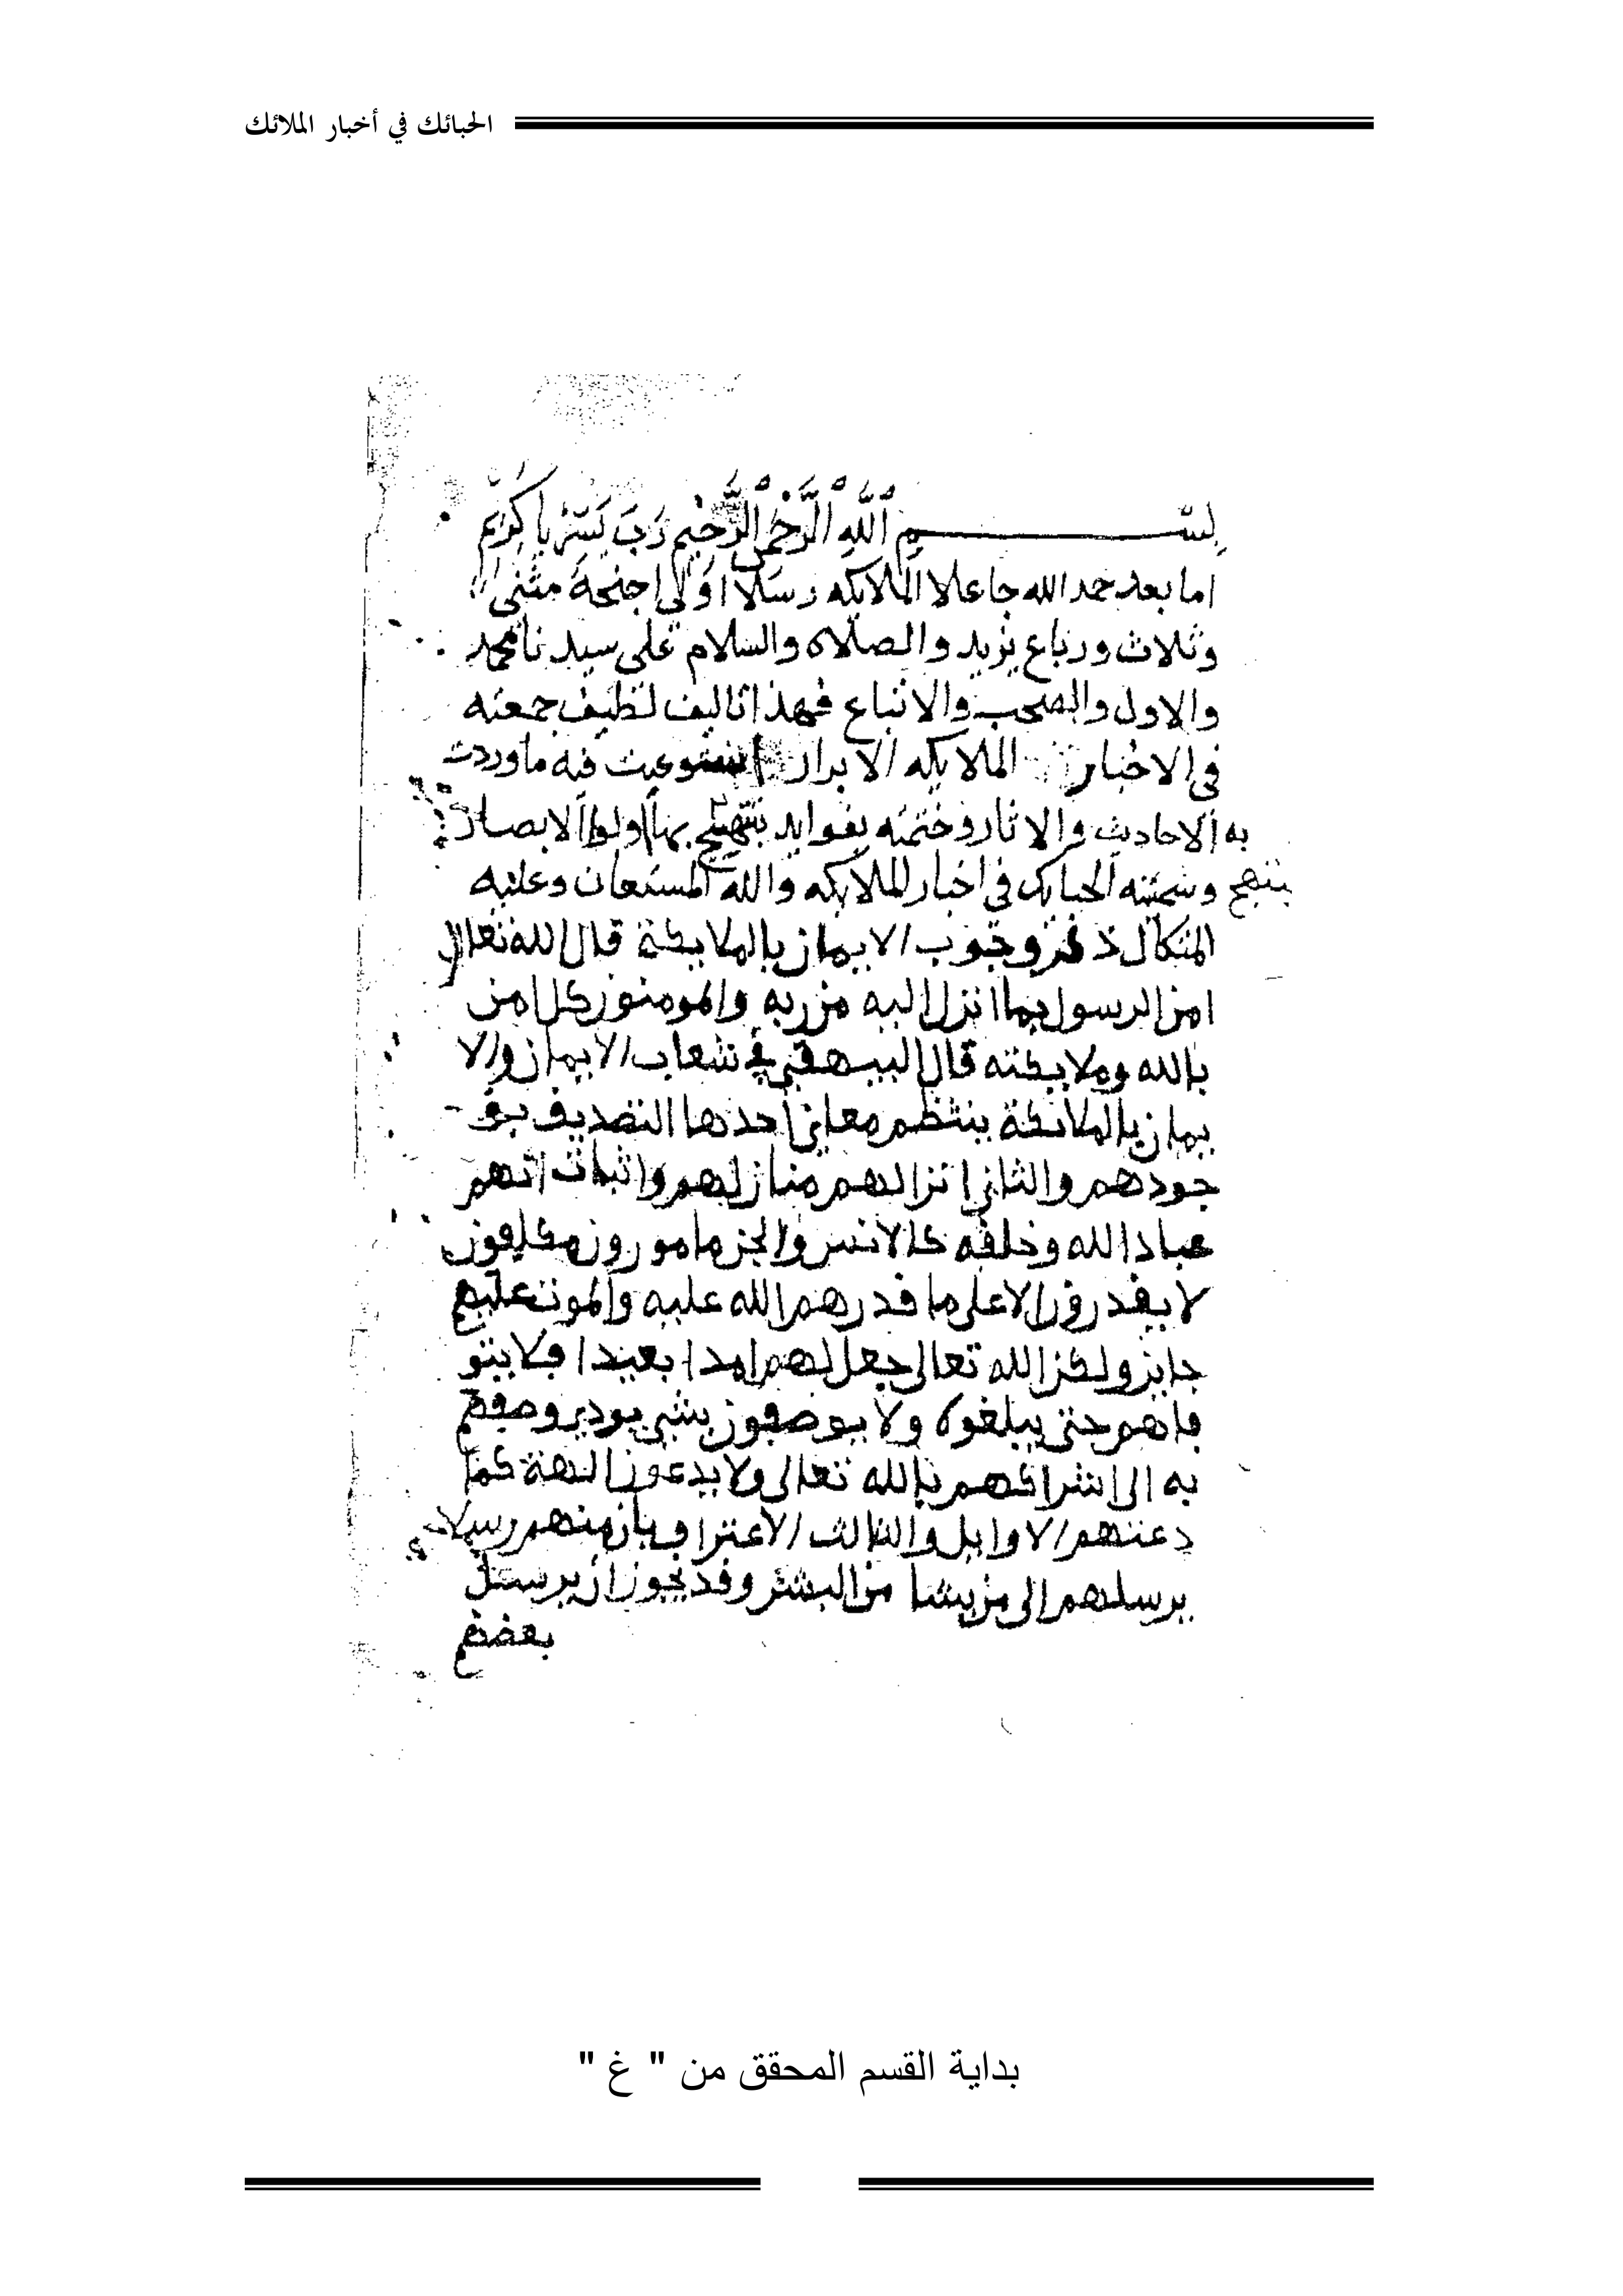 الحبائك في أخبار الملائك
بسم الله الرحمن الرحيم رب يسر يا كريم
اما بعد حمد الله جاعلا الملايكه رسلا اولي اجنحة مثنى
وثلاث ورباع يزيد والصلاه والسلام على سيدنا محمد
والاول والصحب والاتباع فهذا تاليف لطيف جمعته
في الاخبار الملايكه الابرار استوعبت فيه ما وردت
به الاحاديث والاثار وختمته بفوايد بها اولوا الابصار
يبتهج وسميته الحبايك في اخبار الملايكه والله المستعان وعليه
المتكال ذكر وجوب الايمان بالملايكة قال الله تعالى
امن الرسول بما انزل اليه من ربه والمومنون كل امن
بالله وملايكته قال البيهقي في شعاب الايمان والا
يمان بالملائكة ينتظم معاني احدها التصديق بو
جودهم والثاني انزالهم منازلهم واثبات انهم
عباد الله وخلقه كالانس والجن مامورون مكلفون
لا يقدرون الا على ما قدرهم الله عليه والموت عليهم
جايز ولكن الله تعالى جعل لهم امدا بعيدا فلا يتو
فاهم حتى يبلغوه ولا يوصفون بشي يودي وصفهم
به الى اشراكهم بالله تعالى ولا يدعون الهة كما
دعتهم الاوايل والثالث الاعتراف بان منهم رسلا
يرسلهم الى من يشا من البشر وقد يجوز ان يرسل
بعضهم
بداية القسم المحقق من " غ "